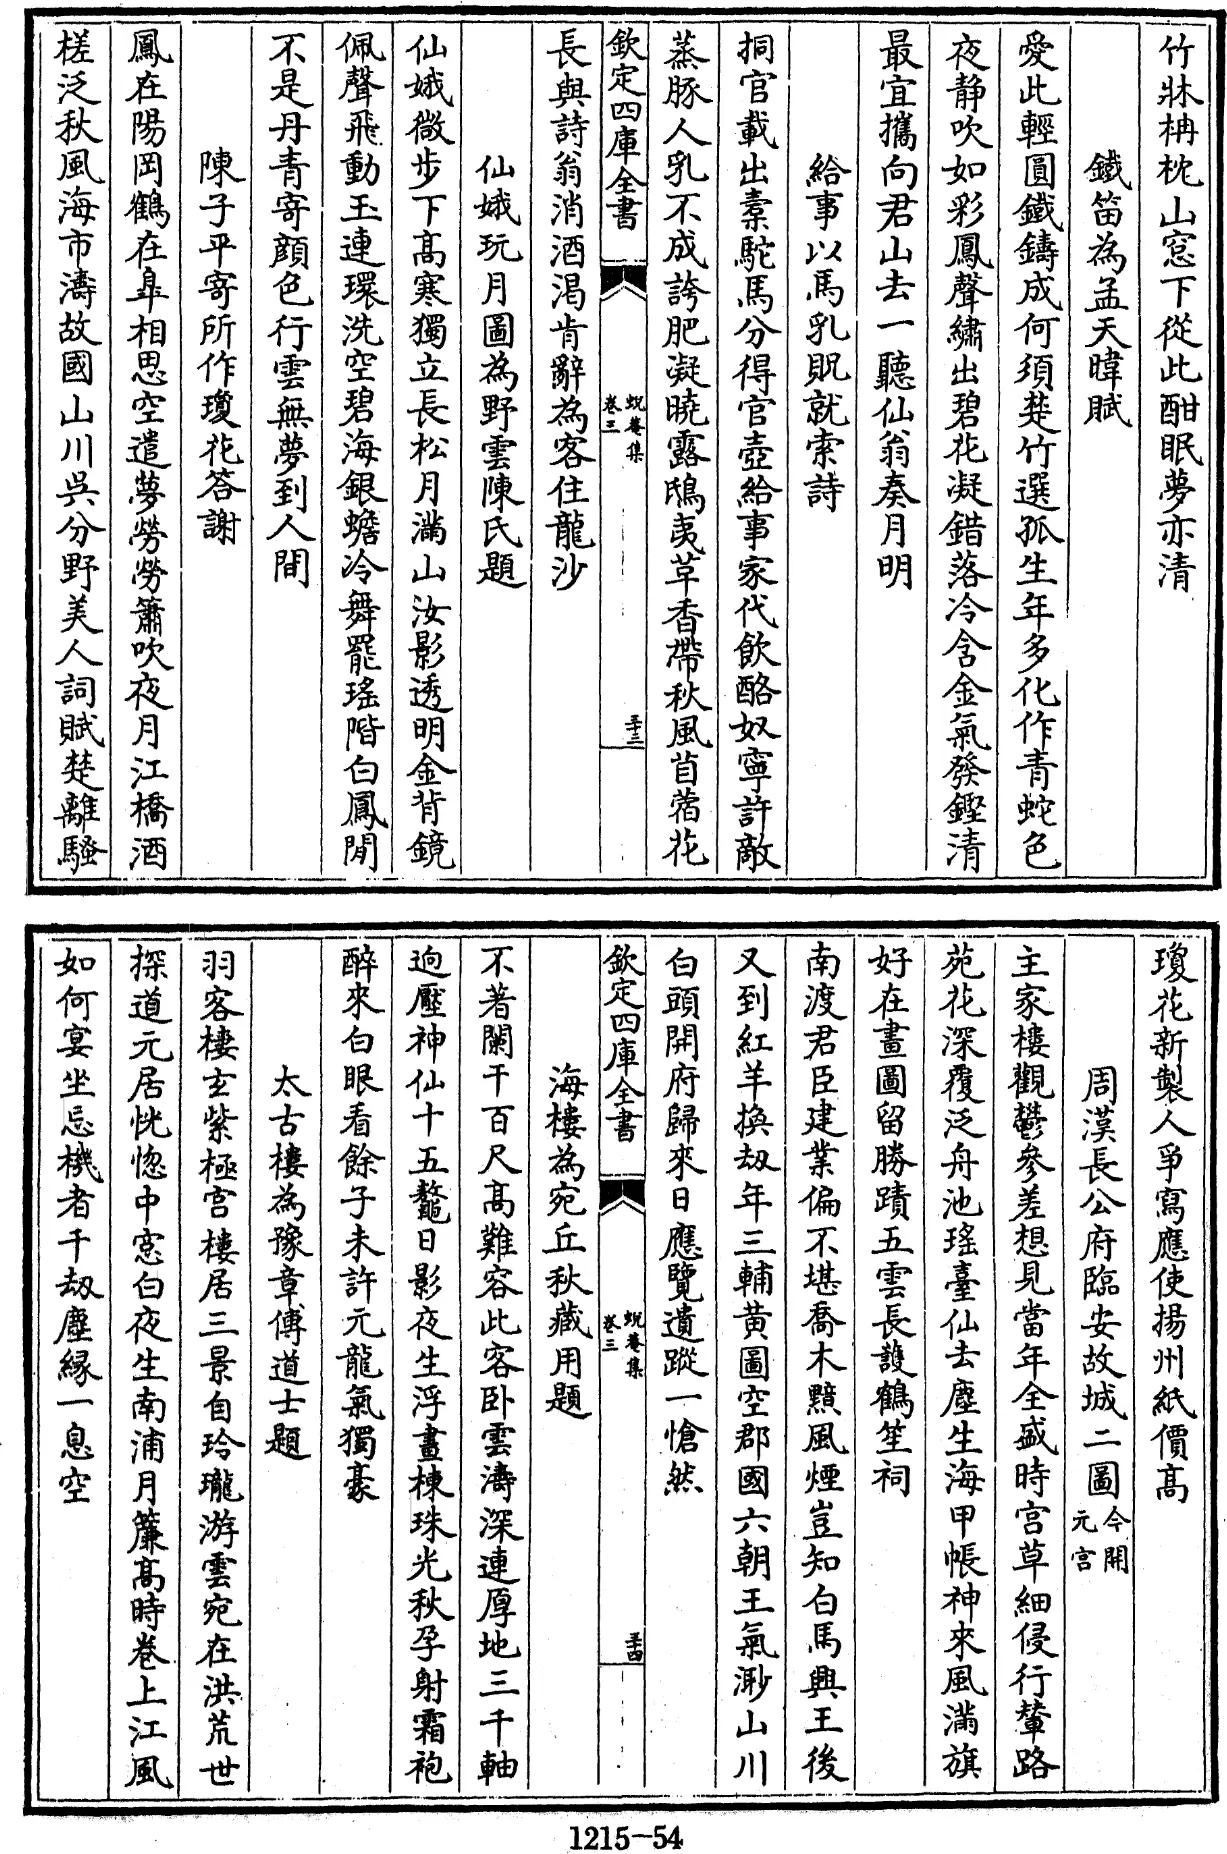 竹牀枏枕山窓下從此酣眠夢亦清
鐵笛為孟天暐賦
愛此輕圓鐵鑄成何須楚竹選孤生年多化作青蛇色
夜靜吹如彩鳳聲繡出碧花凝錯落冷含金氣發鏗清
最宜攜向君山去一聽仙翁奏月明
給事以馬乳貺就索詩
挏官載出橐駝馬分得官壺給事家代飲酪奴寧許敵
蒸豚人乳不成誇肥凝曉露鴟夷草香帶秋風苜蓿花
欽定四庫全書
蛻菴集
卷三
三十三
長與詩翁消酒渴肯辭為客住龍沙
仙娥玩月圖為野雲陳氏題
仙娥微步下高寒獨立長松月滿山汝影透明金背鏡
佩聲飛動玉連環洗空碧海銀蟾冷舞罷瑤階白鳳閒
不是丹青寄顔色行雲無夢到人間
陳子平寄所作瓊花答謝
鳳在陽岡鶴在皐相思空遣夢勞勞簫吹夜月江橋酒
槎泛秋風海市濤故國山川吳分野美人詞賦楚離騷
瓊花新製人爭寫應使揚州紙價高
周漢長公府臨安故城二圖今開元宮
主家樓觀鬱參差想見當年全盛時宮草細侵行輦路
苑花深覆泛舟池瑤臺仙去塵生海甲帳神來風滿旗
好在畫圖留勝蹟五雲長護鶴笙祠
南渡君臣建業偏不堪喬木黯風煙豈知白馬興王後
又到紅羊換刼年三輔黃圖空郡國六朝王氣渺山川
白頭開府歸來日應覽遺蹤一愴然
欽定四庫全書
蛻菴集
卷三
三十四
海樓為宛丘秋藏用題
不著闌干百尺高難容此客卧雲濤深連厚地三千軸
逈壓神仙十五鼇日影夜生浮畫棟珠光秋孕射霜袍
醉來白眼看餘子未許元龍氣獨豪
太古樓為豫章傅道士題
羽客棲玄紫極宮樓居三景自玲瓏游雲宛在洪荒世
探道元居恍惚中窓白夜生南浦月簾高時卷上江風
如何宴坐忘機者千刼塵緣一息空
1215—54